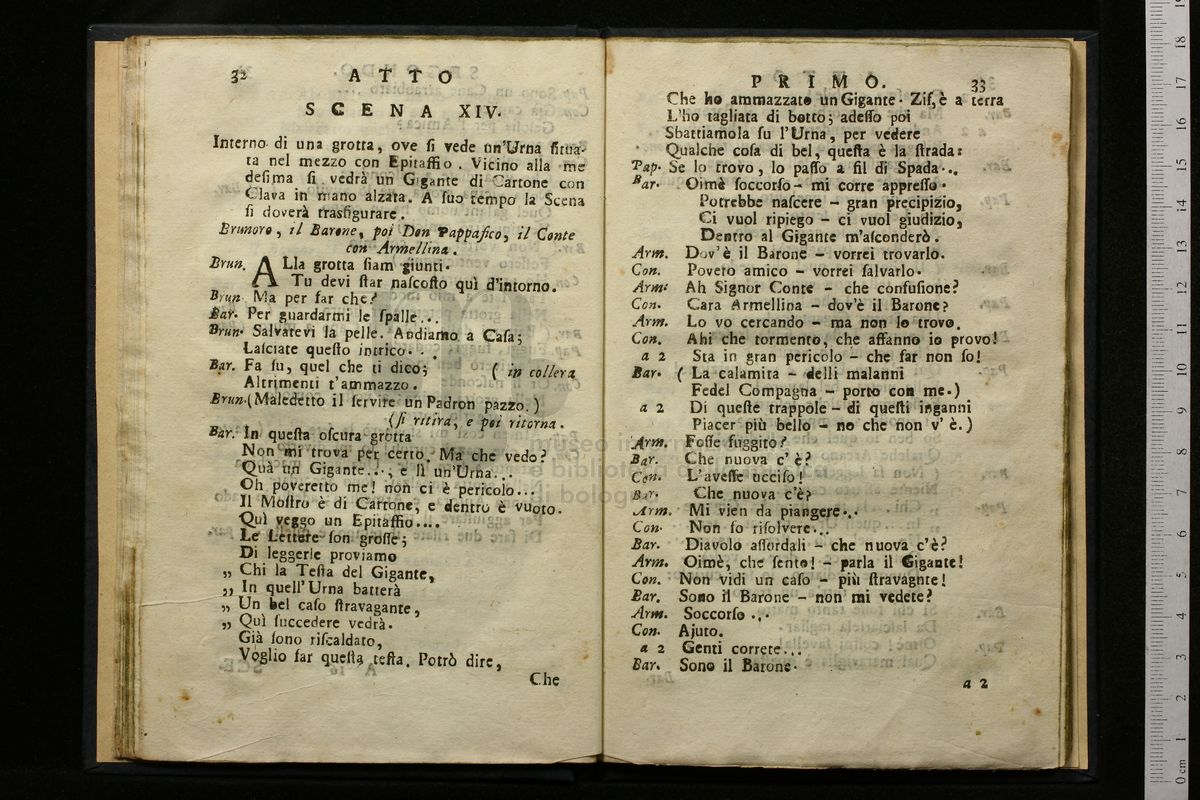 32 ATTO
SCENA XIV.
Interno di una grotta, ove ſi vede un'Urna ſitua-
ta nel mezzo con Epitaffio. Vicino alla me
deſima ſi vedrà un Gigante di Cartone con
Clava in mano alzata. A ſuo tempo la Scena
ſi doverà trasfigurare.
Brunoro, il Barone, poi Don Pappafico, il Conte
con Armellina.
Brun. ALla grotta ſiam giunti.
Tu devi ſtar naſcoſto quì d'intorno.
Brun. Ma per far che?
Bar. Per guardarmi le ſpalle...
Brun. Salvatevi la pelle. Andiamo a Caſa;
Laſciate queſto intrico...
Bar. Fa ſu, quel che ti dico; (in collera
Altrimenti t'ammazzo.
Brun. (Maledetto il ſervire un Padron pazzo.)
(ſi ritira, e poi ritorna.
Bar. In queſta oſcura grotta
Non mi trova per certo. Ma che vedo?
Quà un Gigante...; e lì un'Urna...
Oh poveretto me! non ci è pericolo...
Il Moſtro è di Cartone, e dentro è vuoto.
Quì veggo un Epitaffio....
Le Lettere ſon groſſe;
Di leggerle proviamo
„ Chi la Teſta del Gigante,
„ In quell'Urna batterà
„ Un bel caſo ſtravagante,
„ Quì ſuccedere vedrà.
Già ſono riſcaldato,
Voglio far queſta teſta. Potrò dire,
Che
PRIMO. 33
Che ho ammazzato un Gigante. Ziſ, è a terra
L'ho tagliata di botto; adeſſo poi
Sbattiamola ſu l'Urna, per vedere
Qualche coſa di bel, queſta è la ſtrada:
Pap. Se lo trovo, lo paſſo a fil di Spada...
Bar. Oimè ſoccorſo - mi corre appreſſo.
Potrebbe naſcere - gran precipizio,
Ci vuol ripiego - ci vuol giudizio,
Dentro al Gigante m'aſconderò.
Arm. Dov'è il Barone - vorrei trovarlo.
Con. Povero amico - vorrei ſalvarlo.
Arm: Ah Signor Conte - che confuſione?
Con. Cara Armellina - dov'è il Barone?
Arm. Lo vo cercando - ma non lo trovo.
Con. Ahi che tormento, che affanno io provo!
a 2 Sta in gran pericolo - che far non ſo!
Bar. (La calamita - delli malanni
Fedel Compagna - porto con me.)
a 2 Di queſte trappole - di queſti inganni
Piacer più bello - no che non v'è.)
Arm. Foſſe fuggito?
Bar. Che nuova c'è?
Con. L'aveſſe ucciſo!
Bar. Che nuova c'è?
Arm. Mi vien da piangere...
Con. Non ſo riſolvere...
Bar. Diavolo aſſordali - che nuova c'è?
Arm. Oimè, che ſento! - parla il Gigante!
Con. Non vidi un caſo - più ſtravagnte!
Bar. Sono il Barone - non mi vedete?
Arm. Soccorſo...
Con. Ajuto.
a 2 Genti correte...
Bar. Sono il Barone.
a 2